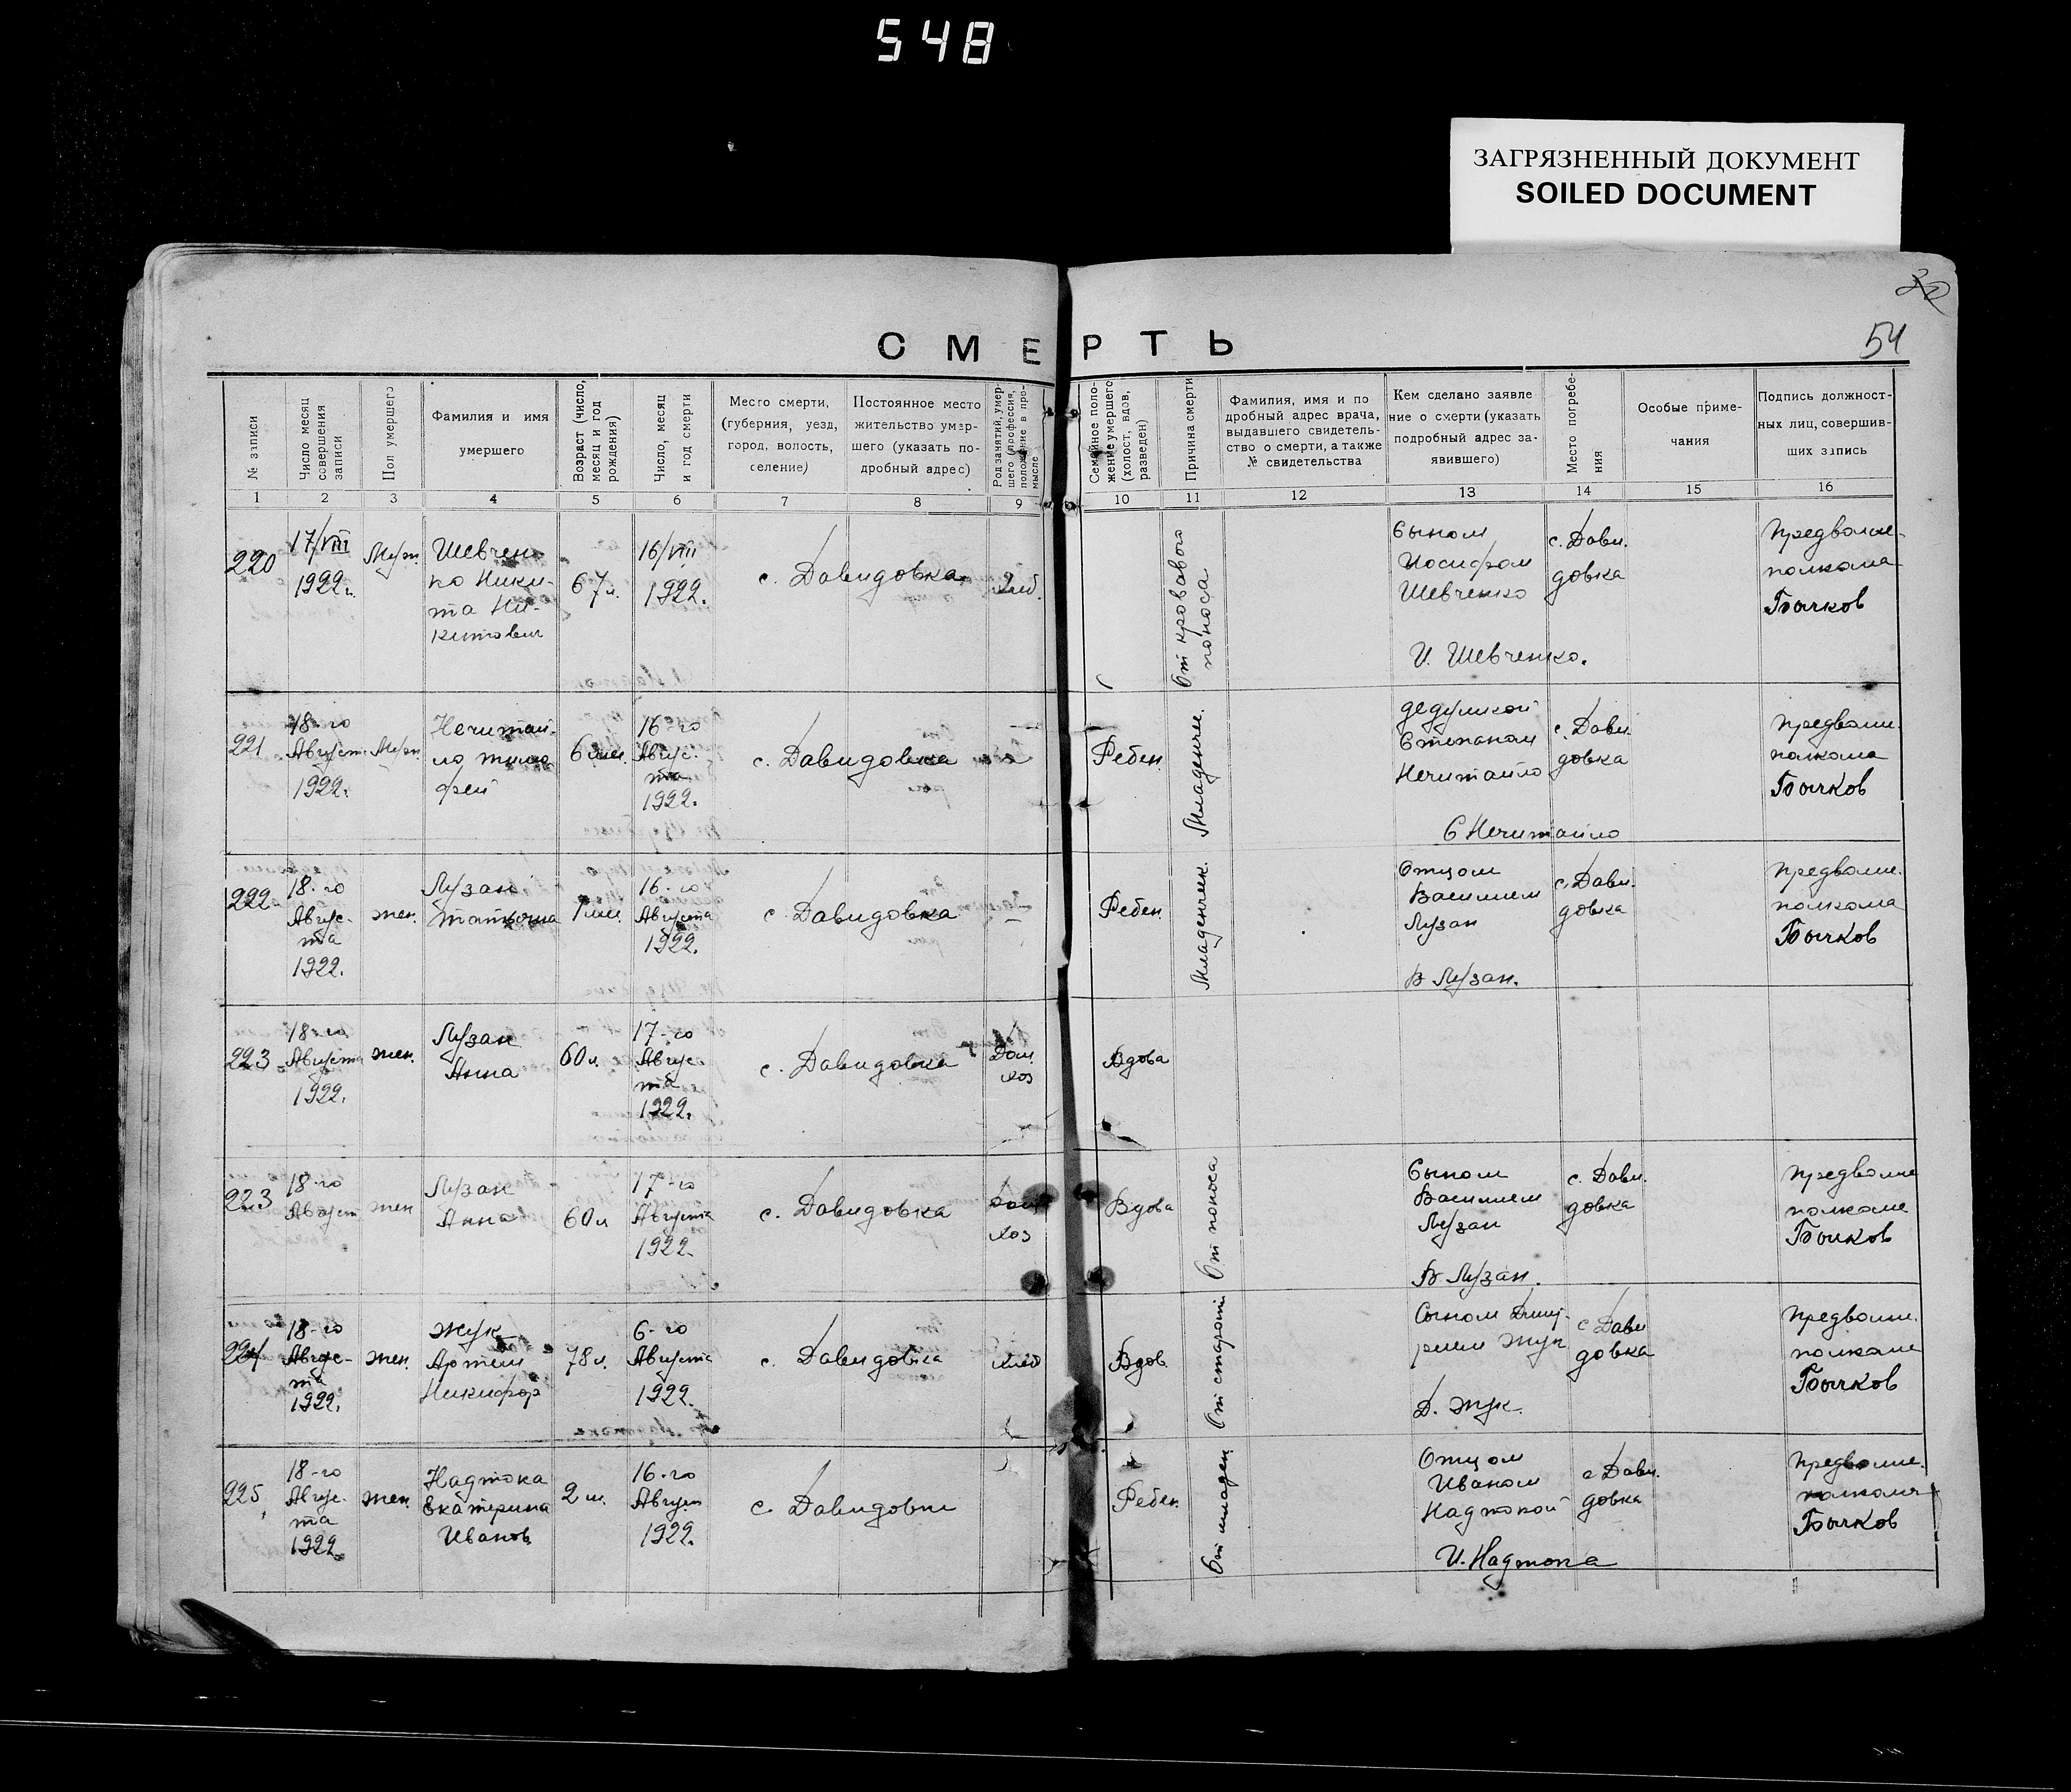 548
ЗАГРЯЗНЕННЫЙ ДОКУМЕНТ
SOILED DOCUMENT
54
СМЕРТЬ
№ записи
Число месяц
совершения
записи
Пол умершего
Фамилия и имя
умершего
Возраст (число,
месяц и год
рождения)
Число, месяц
и год смерти
Место смерти,
(губерния, уезд,
город, волость,
селение)
Постоянное место
жительство умер-
шего (указать по-
дробный адрес)
Род занятий, умер-
шего (профессия,
положение в про-
мысле
Семейное поло-
жение умершего
(холост, вдов,
разведен)
Причина смерти
Фамилия, имя и по
дробный адрес врача,
выдавшего свидетель-
ство о смерти, а также
№ свидетельства
Кем сделано заявле
ние о смерти (указать
подробный адрес за-
явившего)
Место погребе-
ния
Особые приме-
чания
Подпись должност-
ных лиц, совершив-
ших запись
1 2 3 4 5 6 7 8 9 10 11 12 13 14 15 16
220
17/VIII
1922г.
Муж.
Шевчен
ко Ники-
та Ни-
китович
67л.
16/VIII
1922.
с. Давидовка
хлеб.
От кровавого
поноса
Сыном
Иосифом
Шевченко
И. Шевченко.
с. Дави.
довка
Предволис-
полкома
Бычков
221
18-го
Август
1922.
Муж.
Нечитай-
ло Тимо
фей
6 мес.
16-го
Авгус-
та
1922.
с. Давидовка
Ребен.
Младенчес.
дедушкой
Степаном
Нечитайло
С Нечитайло
с. Дави.
довка
Предволис
полкома
Бычков
222
18-го
Авгус-
та
1922.
жен.
Лузан
16-го
Августа
1922.
с. Давидовка
Ребен.
Младенческ.
Отцом
Василием
Лузан
В Лузан.
с. Дави.
довка
Предволис.
полкома
Бычков
223
18-го
Августа
1922.
жен.
Лузан
Анна
60л.
17-го
Авгус-
та
1922.
с. Давидовка
Дом.
хоз
Вдова
223
18-го
Август
жен
Лузан
Анна
60л
17-го
Августа
1922.
с. Давидовка
Дом
хоз
Вдова
От поноса
Сыном
Василием
Лузан
В Лузан.
с. Дави.
довка
Предволис
полкома
Бычков
224
18-го
Авгус-
та
1922.
жен.
Жук
Артем
Никифор
78л.
6-го
Августа
1922.
с. Давидовка
хлеб
Вдов.
От старост.
Сыном Дмит-
рием Жук
Д. Жук.
с Дави
довка
Предволис.
полкома
Бычков
225
18-го
Авгус-
та
1922.
жен.
Надтока
Екатерина
Иванов
2 м.
16-го
Август
1922.
с. Давидовка
Ребен.
От младен.
Отцом
Иваном
Надтокой
И. Надтока
с Дави.
довка
Предволис.
полкома
Бычков